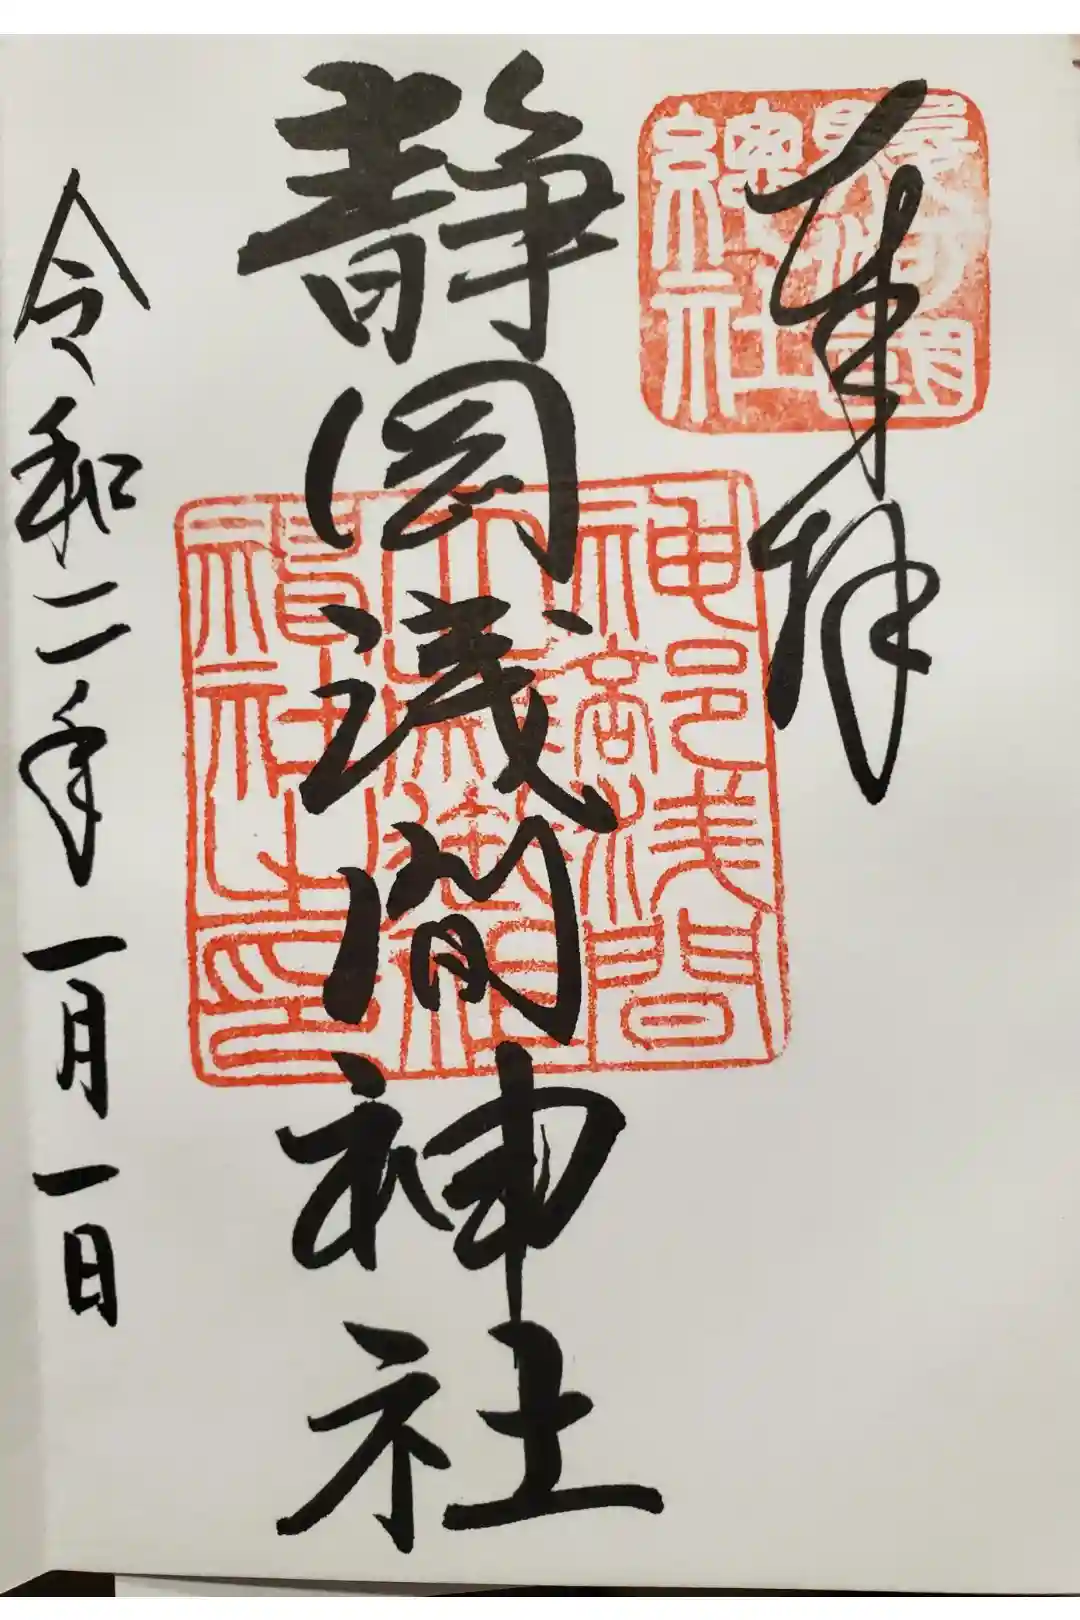 奉拝
駿河國
總社
静岡浅間神社
神部浅間
大歳御祖
神社之印
令和二年一月一日